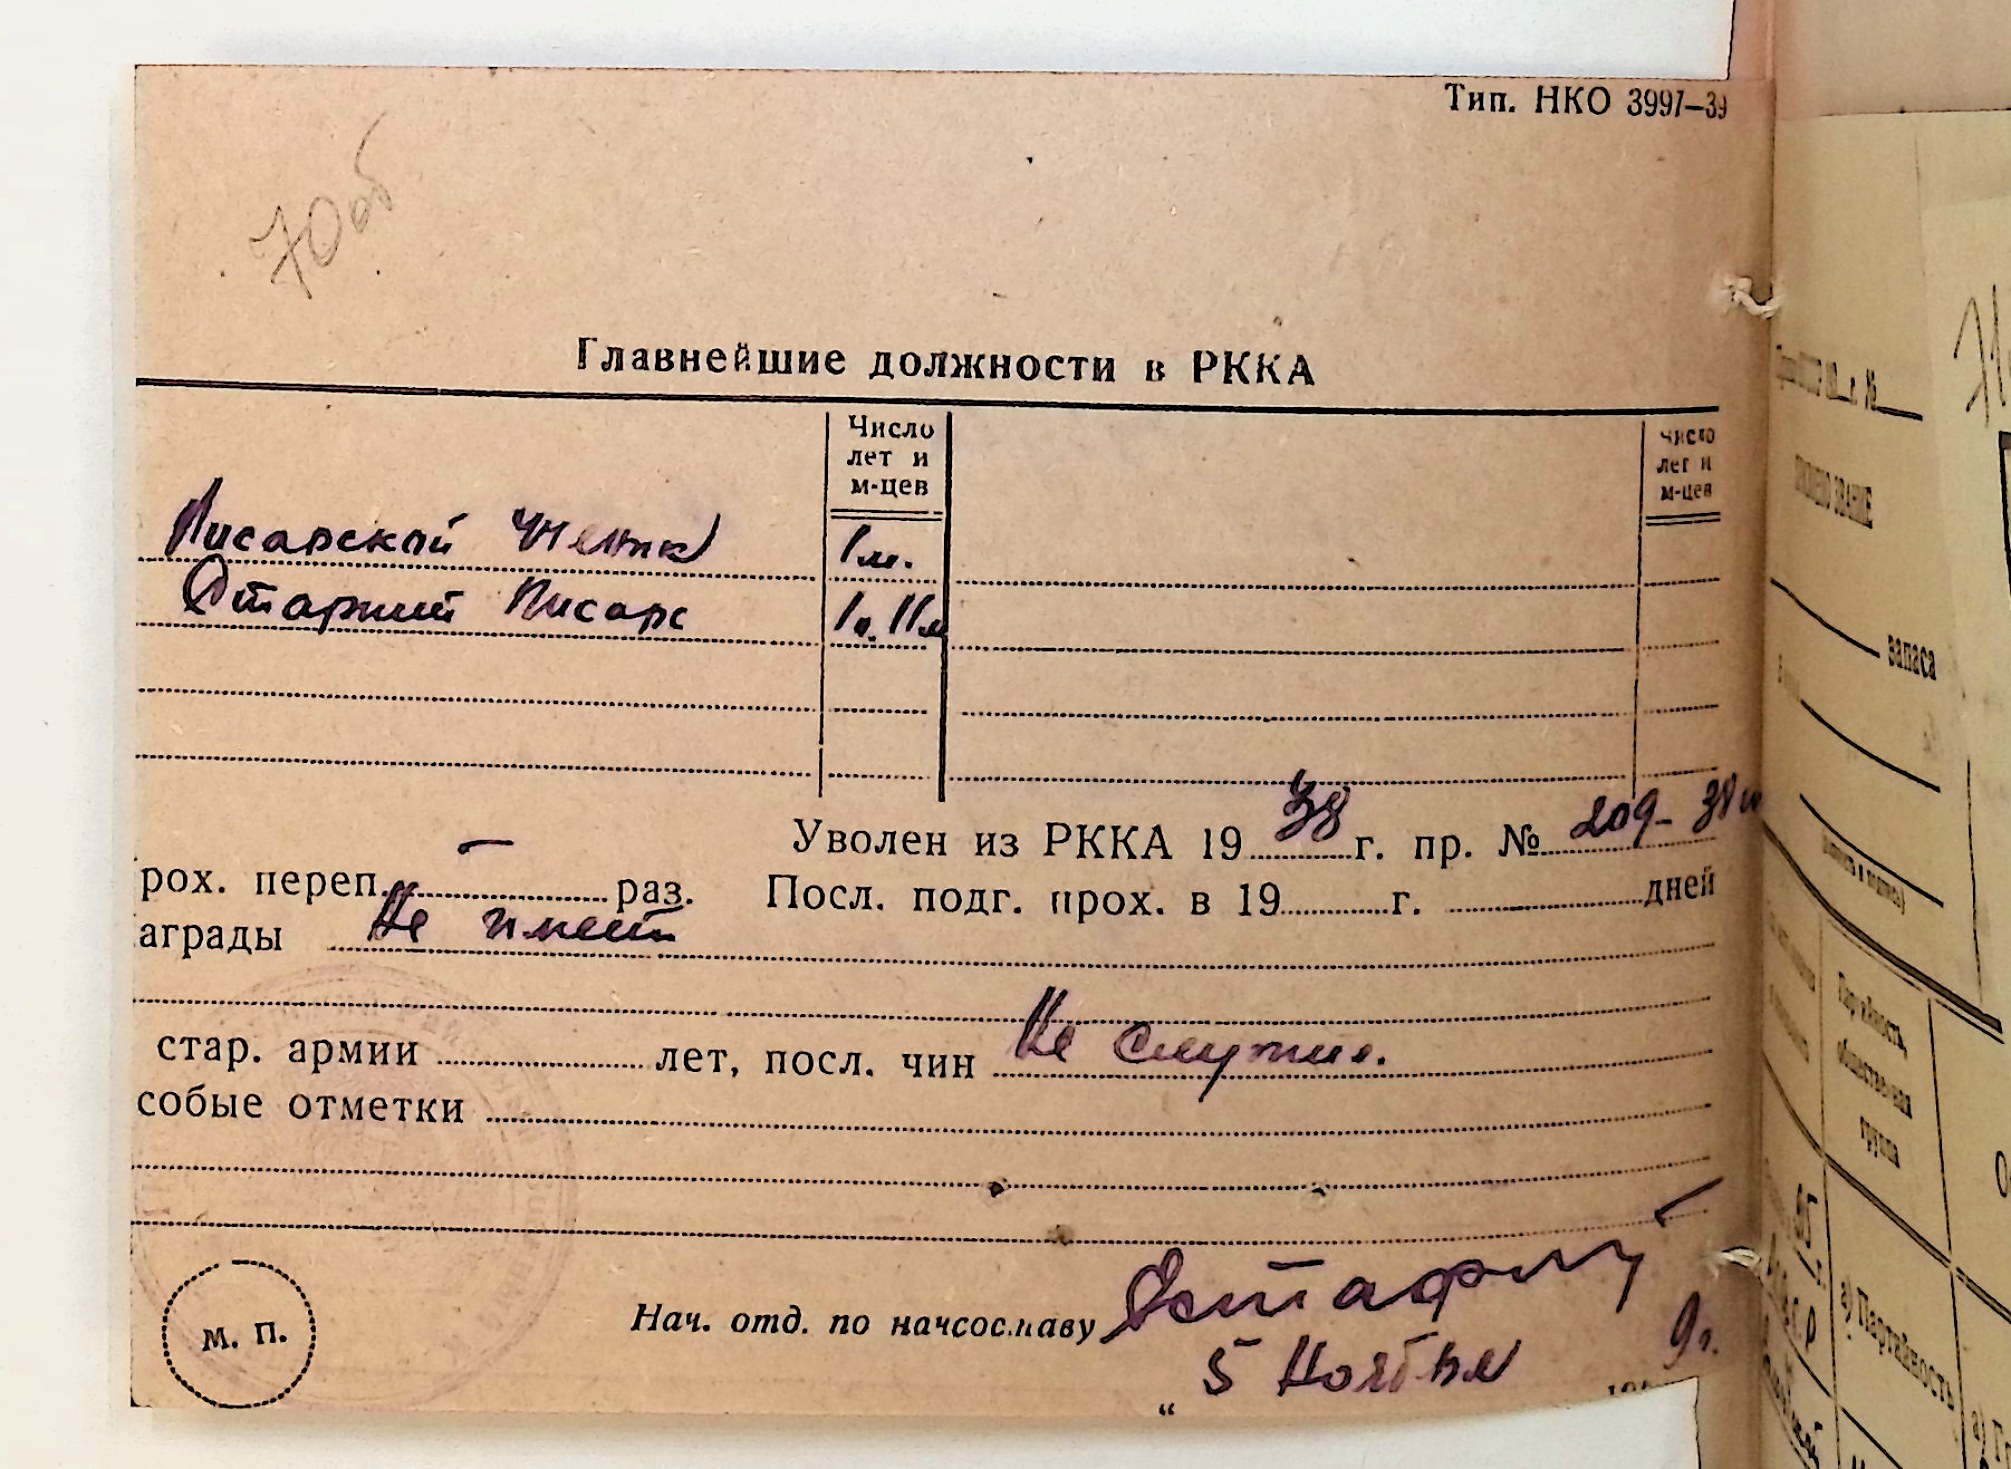 Тип. НКО 3997—39
70об
Главнейшие должности в РККА
Число лет и м-цев
Число лет и м-цев
Писарской Ученик 1 м.
Старший Писарь 1 г. 11 м
Уволен из РККА 1938 г. пр. № 209-38
рох. переп. — раз. Посл. подг. прох. в 19 г. дней
аграды Не имеет
стар. армии лет, посл. чин Не служил.
собые отметки
М. П.
Нач. отд. по начсоставу
„ 5 Ноября 9 г.
запаса
Партийность, общественная группа
а) Партийность